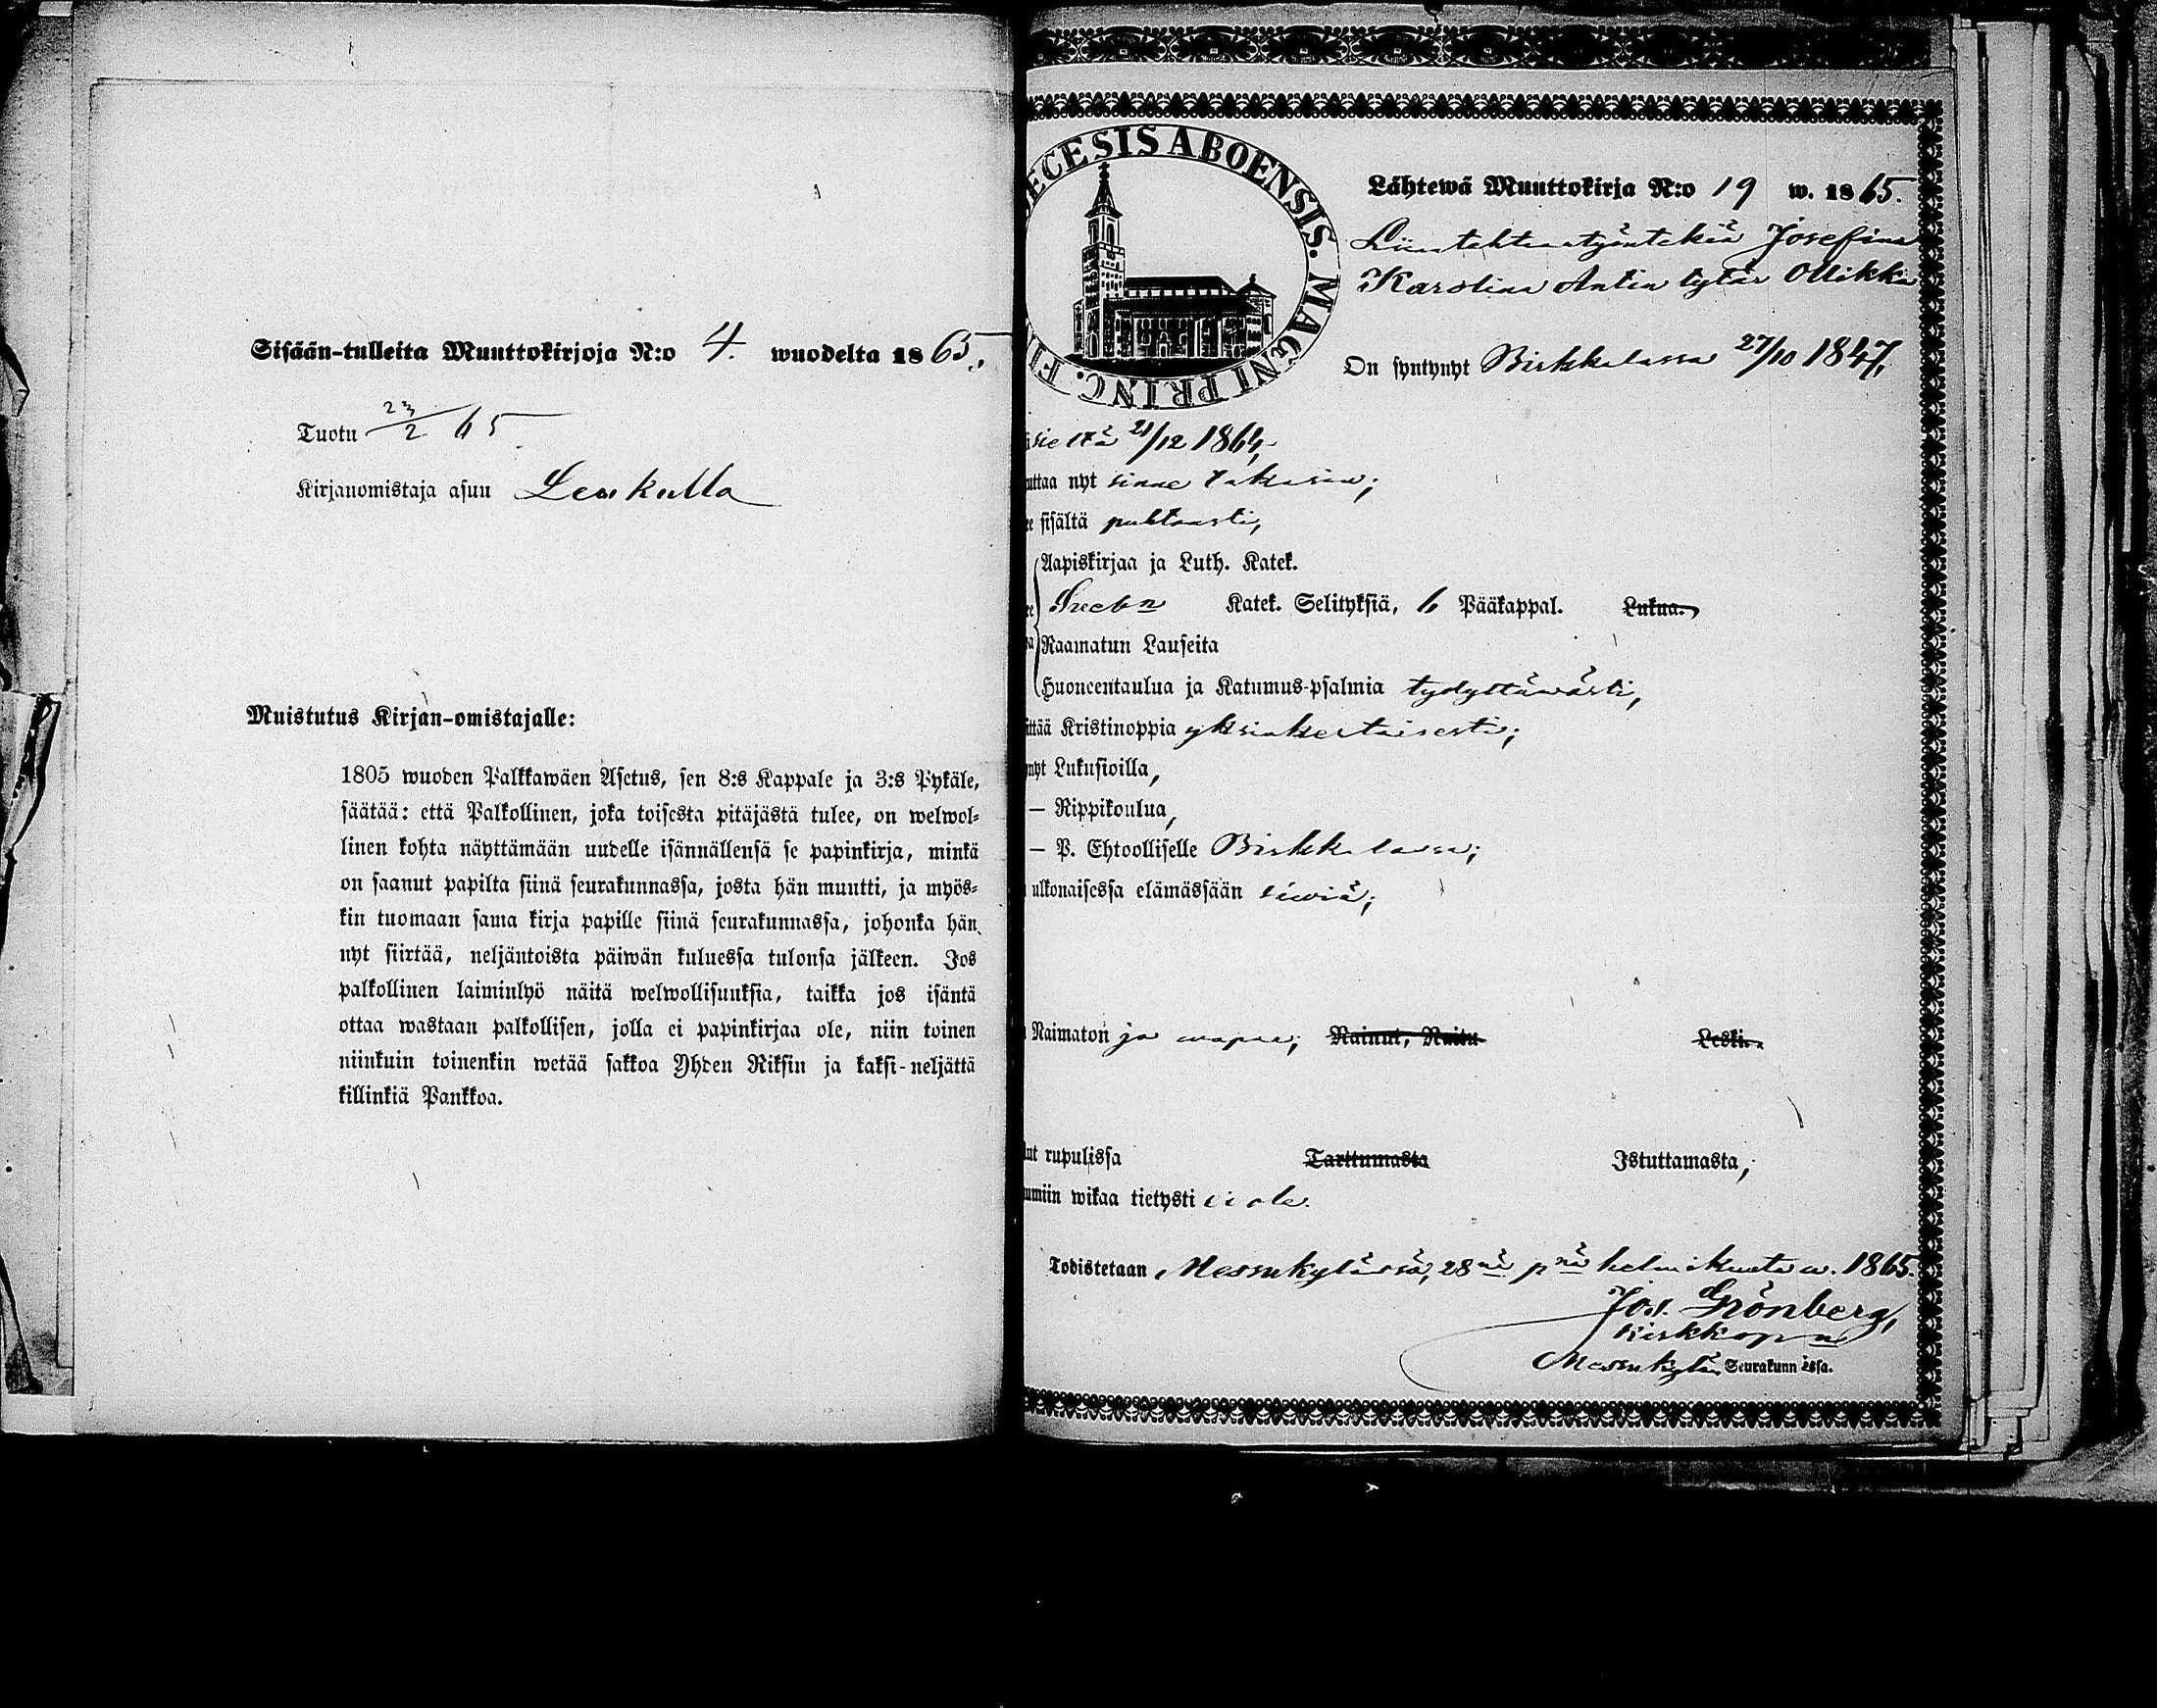 Sisään-tulleita Muuttokirjoja N:o 4. wuodelta 1865.
Tuotu 23/2 65
Kirjanomistaja asuu
Muistutus Kirjan-omistajalle:
1805 wuoden Palkkawäen Asetus, sen 8:s Kappale ja 3:s Pykäle,
säätää: että Palkollinen, joka toisesta pitäjästä tulee, on welwol-
linen kohta näyttämään uudelle isännällensä se papinkirja, minkä
on saanut papilta siinä seurakunnassa, josta hän muutti, ja myös-
kin tuomaan sama kirja papille siinä seurakunnassa, johonka hän
nyt siirtää, neljäntoista päiwän kuluessa tulonsa jälkeen. Jos
palkollinen laiminlyö näitä welwollisuuksia, taikka jos isäntä
ottaa wastaan palkollisen, jolla ei papinkirjaa ole, niin toinen
niinkuin toinenkin wetää sakkoa Yhden Riksin ja kaksi-neljättä
killinkiä Pankkoa.
ECESIS ABOENSIS. MAGNI PRINC. FI
Lähtewä Muuttokirja N:o 19 w. 1865.
Liinatehtaantyöntekiä Josefina
Karolina Antin tytär Ollikka
On syntynyt Birkkalassa 27/10 1847,
sieltä 21/12 1864,
uttaa nyt sinne takasin;
ee sisältä puhtaasti,
Aapiskirjaa ja Luth. Katek.
Svebn Katek. Selityksiä, 6 Pääkappal. Lukua.
Raamatun Lauseita
Huoneentaulua ja Katumus-psalmia tydyttäwästi,
ittää Kristinoppia yksinkertaisesti;
nyt Lukusioilla,
— Rippikoulua,
— P. Ehtoolliselle Birkkalassa;
ulkonaisessa elämässään siiwiä;
Naimaton ja wapaa; Nainut, Naitu Leski.
ut rupulissa Tarttumasta Istuttamasta,
umiin wikaa tietysti ei ole.
Todistetaan Messukylässä, 28nä pnä helmikuuta w. 1865.
Jos. Grönberg,
Kirkkop
Messukylän Seurakunnassa.